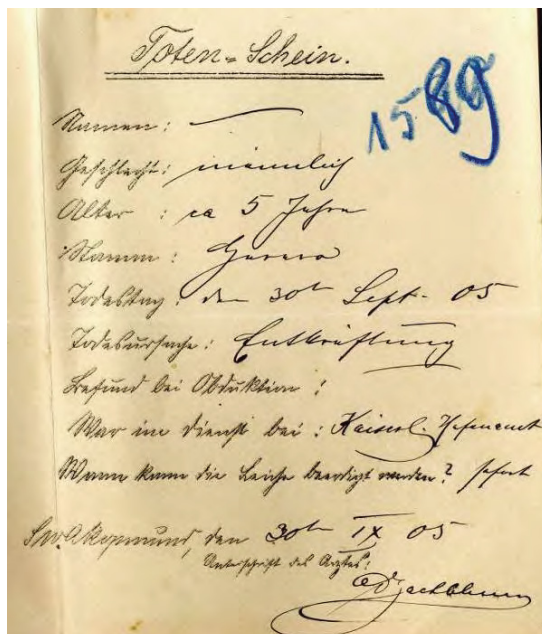 Toten-Schein.
1589
Namen: —
Geschlecht: männlich
Alter : ca 5 Jahre
Stamm : Herero
Todestag: den 30ten Sept. 05
Todesursache: Entkräftung
Befund bei Obduktion :
War im Dienst bei : Kaiserl. Hafenamt
Wann kann die Leiche beerdigt werden? sofort
Swakopmund, den 30ten IX 05
Unterschrift des Arztes: